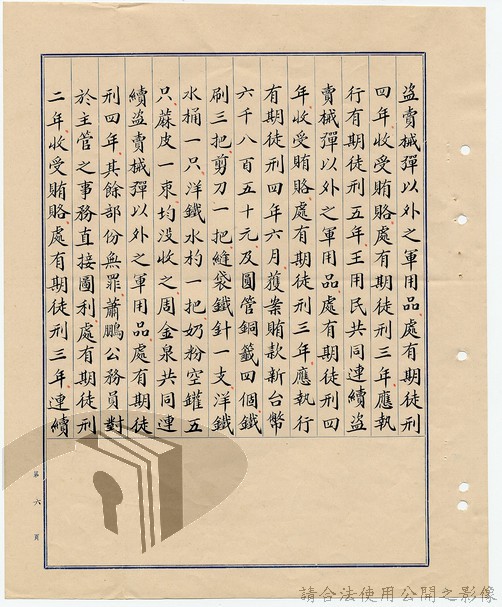 盜賣械彈以外之軍用品處有期徒刑
四年收受賄賂處有期徒刑三年應執
行有期徒刑五年王用民共同連續盜
賣械彈以外之軍用品處有期徒刑四
年收受賄賂處有期徒刑三年應執行
有期徒刑四年六月獲案賄款新台幣
六千八百五十元及圓管銅籤四個鐵
刷三把剪刀一把縫袋鐵針一支洋鐵
水桶一只洋鐵水杓一把奶粉空罐五
只蔴皮一束均沒收之周金泉共同連
續盜賣械彈以外之軍用品處有期徒
刑四年其餘部份無罪蕭鵬公務員對
於主管之事務直接圖利處有期徒刑
二年收受賄賂處有期徒刑三年連續
第六頁
請合法使用公開之影像